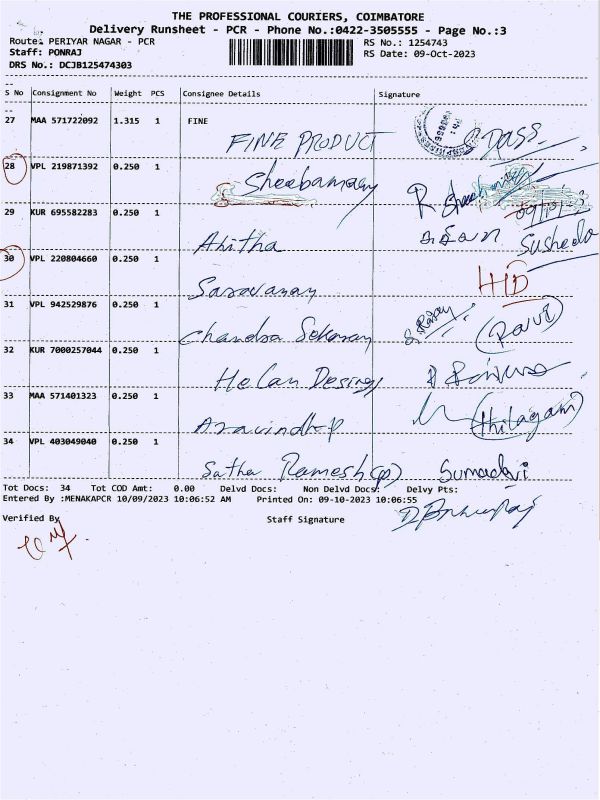 THE PROFESSIONAL COURIERS, COIMBATORE
Delivery Runsheet - PCR - Phone No.:0422-3505555 - Page No.:3
Route: PERIYAR NAGAR - PCR RS No.: 1254743
Staff: PONRAJ RS Date: 09-Oct-2023
DRS No.: DCJB125474303
S No Consignment No Weight PCS Consignee Details Signature
27 MAA 571722092 1.315 1 FINE
FINE PRODUCT
28 VPL 219871392 0.250 1
Sheebamary R
29 KUR 695582283 0.250 1
Anitha Susheela
30 VPL 220804660 0.250 1
Saravanan HD
31 VPL 942529876 0.250 1
Chandra Sekaran (Ravi)
32 KUR 7000257044 0.250 1
Helan Desing
33 MAA 571401323 0.250 1
Aravindh P (thilagam)
34 VPL 403049040 0.250 1
Satha Ramesh (p) Sumadevi
Tot Docs: 34 Tot COD Amt: 0.00 Delvd Docs: Non Delvd Docs: Delvy Pts:
Entered By :MENAKAPCR 10/09/2023 10:06:52 AM Printed On: 09-10-2023 10:06:55
Verified By Staff Signature